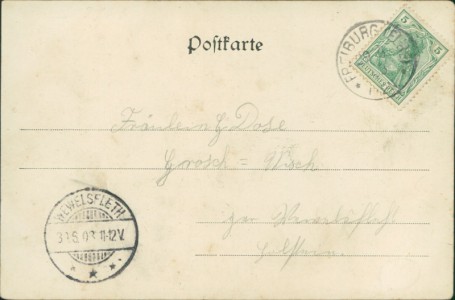 Postkarte
5 5
FREIBURG
Fräulein E Dose
Grosch = Wisch
per Wewelsfleth
Holstein.
WEWELSFLETH
11-12V.